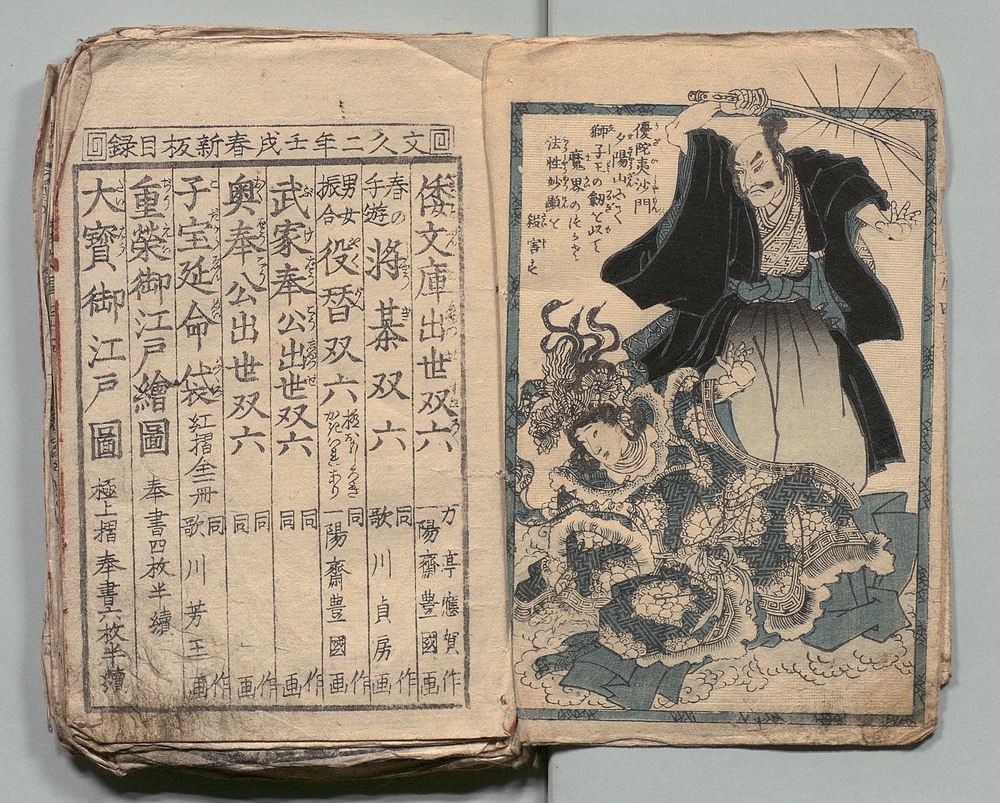 優陀夷沙門
夕陽山にて
獅子王の劔を以て
魔界の
法性妙顕と
殺害す
文久二年壬戌春新板目録
倭文庫出世双六 万亭應賀作 一陽齋豊國画
春の手遊 将棊双六 同作 歌川貞房画
男女振合 役替双六 同作 一陽齋豊國画
武家奉公出世双六 同作 同画
奥奉公出世双六 同作 同画
子宝延命袋 紅摺全一冊 同作 歌川芳玉画
重榮御江戸繪圖 奉書四枚半續
大寳御江戸圖 極上摺奉書六枚半續